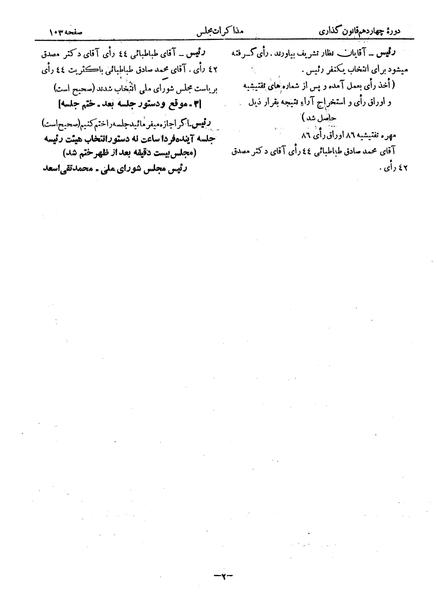 دورهٔ چهاردهم قانون گذاری
مذاکرات مجلس
صفحه ۱۰۳
رئیس ـ آقایان نظار تشریف بیاورند. رأی گرفته
میشود برای انتخاب یکنفر رئیس.
(أخذ رأی بعمل آمده و پس از شماره های تفتیشیه
و اوراق رأی و استخراج آراء نتیجه بقرار ذیل
حاصل شد)
مهره تفتیشیه ۸۶ اوراق رأی ۸۶
آقای محمد صادق طباطبائی ۴۴ رأی آقای دکتر مصدق
۴۲ رأی.
رئیس ـ آقای طباطبائی ۴۴ رأی آقای دکتر مصدق
۴۲ رأی. آقای محمد صادق طباطبائی باکثریت ۴۴ رأی
بریاست مجلس شورای ملی انتخاب شدند (صحیح است)
[۳ـ موقع و دستور جلسه بعد ـ ختم جلسه]
رئیس ـ اگر اجازه میفرمائید جلسه را ختم کنیم (صحیح است)
جلسه آینده فردا ساعت نه دستور انتخاب هیئت رئیسه
(مجلس بیست دقیقه بعد از ظهر ختم شد)
رئیس مجلس شورای ملی ـ محمدتقی اسعد
ـ۲ـ